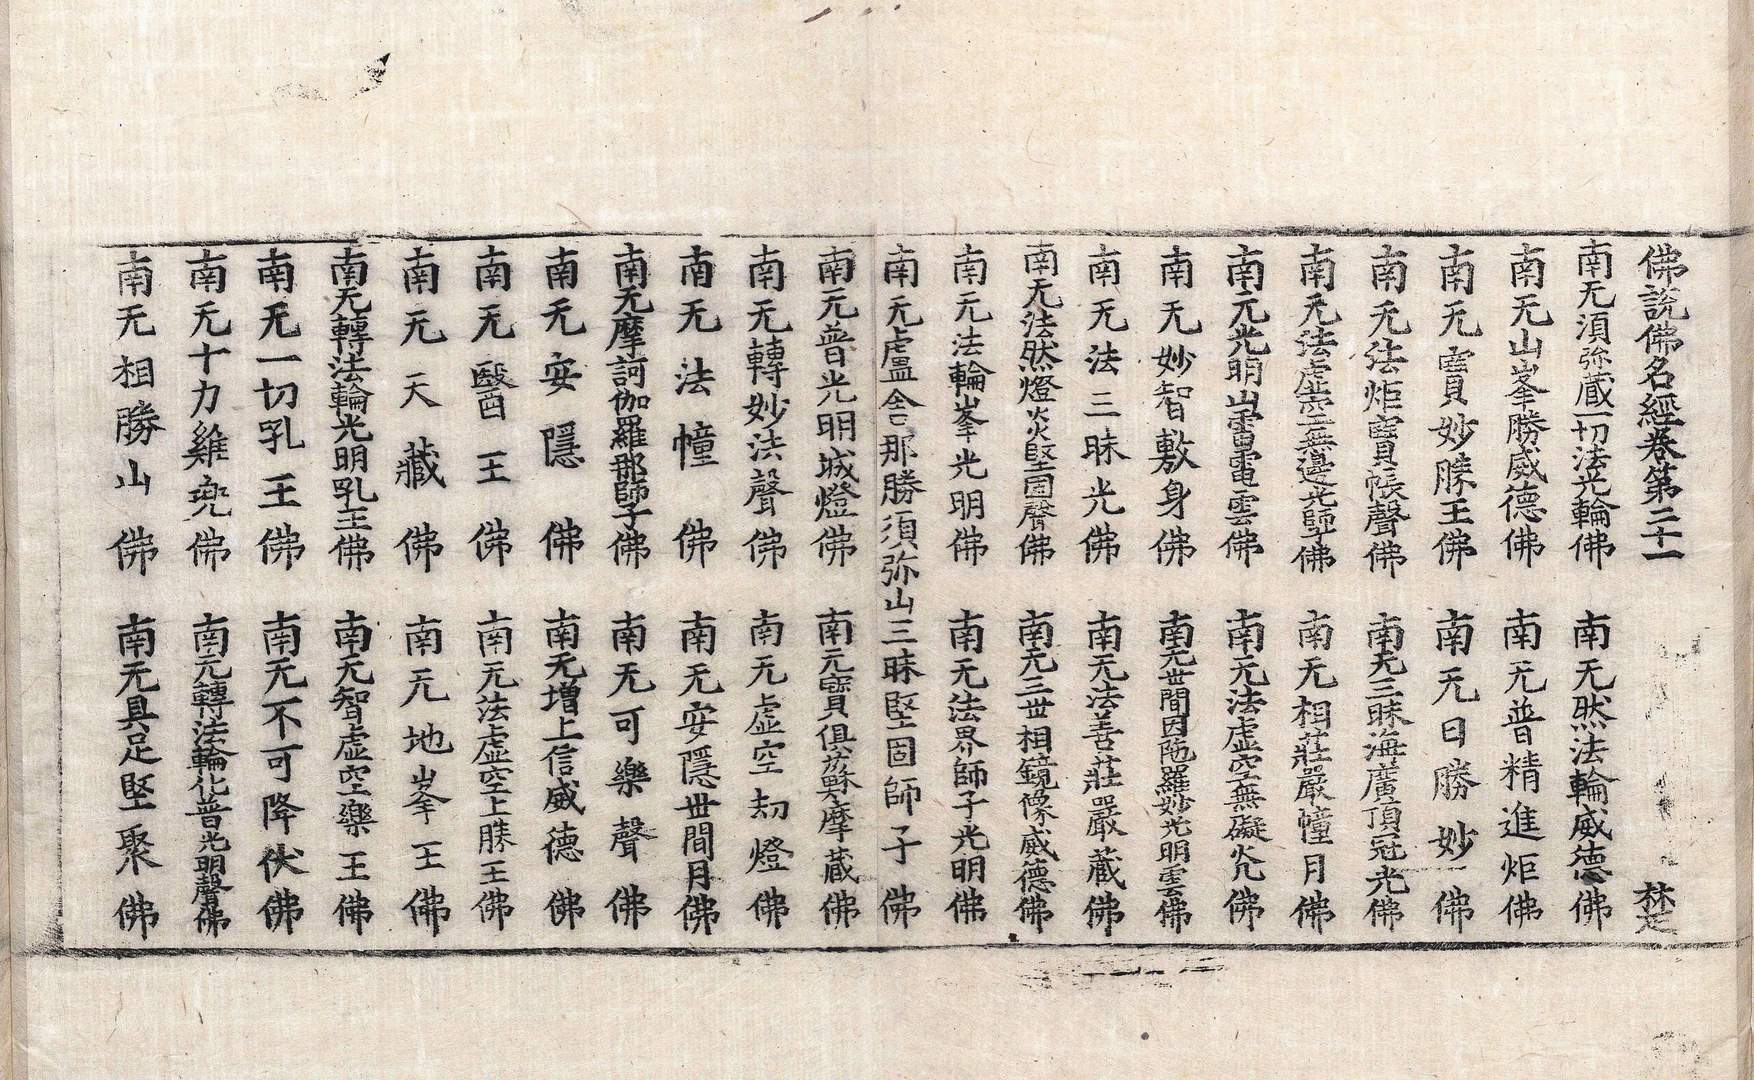 佛說佛名經卷第二十一 楚
南无須弥藏一切法光輪佛 南无然法輪威德佛
南无山峯勝威德佛 南无普精進炬佛
南无寶妙勝王佛 南无日勝妙佛
南无法炬寶帳聲佛 南无三昧海廣頂冠光佛
南无法虛空無邊光師子佛 南无相莊嚴幢月佛
南无光明山雷電雲佛 南无法虛空無礙光佛
南无妙智敷身佛 南无世間因陁羅妙光明雲佛
南无法三昧光佛 南无法善莊嚴藏佛
南无法然燈炎堅固聲佛 南无三世相鏡像威德佛
南无法輪峯光明佛 南无法界師子光明佛
南无盧舍那勝須弥山三昧堅固師子佛
南无普光明城燈佛 南无寶俱蘇摩藏佛
南无轉妙法聲佛 南无虛空劫燈佛
南无法幢佛 南无安隱世間月佛
南无摩訶伽羅那師子佛 南无可樂聲佛
南无安隱佛 南无增上信威德佛
南无醫王佛 南无法虛空上勝王佛
南无天藏佛 南无地峯王佛
南无轉法輪光明乳王佛 南无智虛空樂王佛
南无一切乳王佛 南无不可降伏佛
南无十力雞兜佛 南无轉法輪化普光明聲佛
南无相勝山佛 南无具足堅聚佛